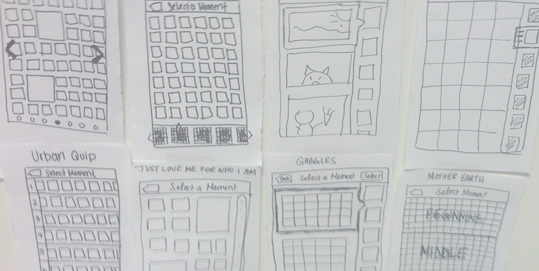 Select a Moment
Urban Quip
Select Moment
1
2
3
4
5
6
"JUST LOVE ME FOR WHO I AM
Select a Moment
GAGGLES
Select a Moment
Select
MOTHER EARTH
Select Moment
BEGINNING
MIDDLE